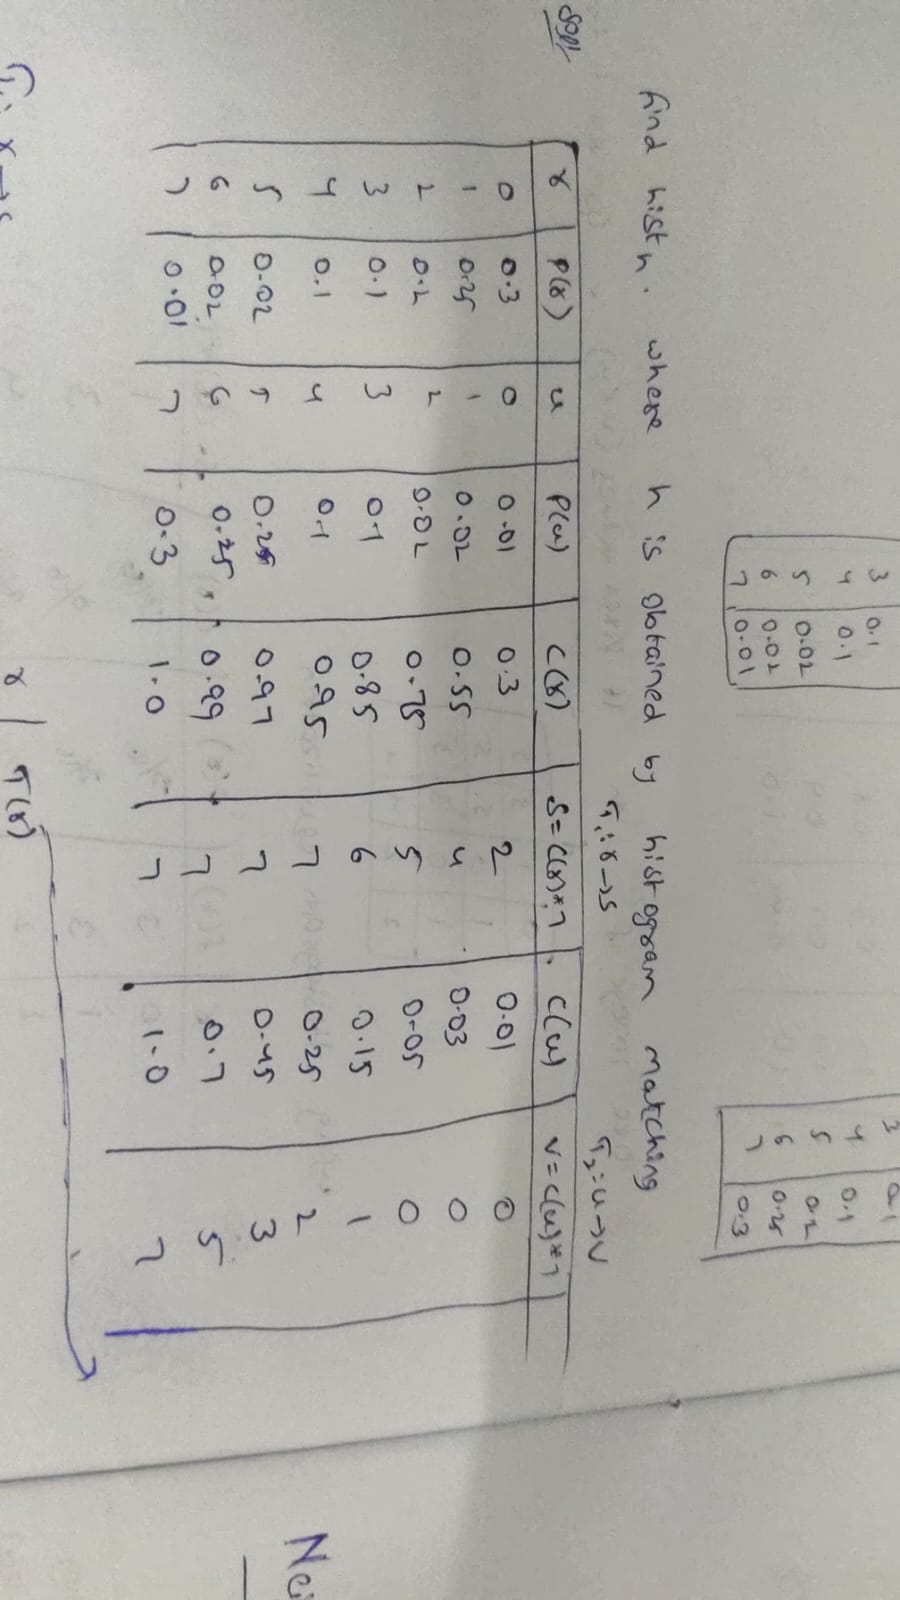 3 0.1 3 0.1
4 0.1 4 0.1
5 0.02 5 0.2
6 0.02 6 0.25
7 0.01 7 0.3
find hist_h. where h is obtained by histogram matching
T₁: r→s T₂: u→v
Soln
r P(r) u P(u) C(r) S=C(r)*7 C(u) V=C(u)*7
0 0.3 0 0.01 0.3 2 0.01 0
1 0.25 1 0.02 0.55 4 0.03 0
2 0.2 2 0.02 0.75 5 0.05 0
3 0.1 3 0.1 0.85 6 0.15 1
4 0.1 4 0.1 0.95 7 0.25 2
5 0.02 5 0.97 7 0.45 3
6 0.02 6 0.25 0.99 7 0.7 5
7 0.01 7 0.3 1.0 7 1.0 7
r T(r)